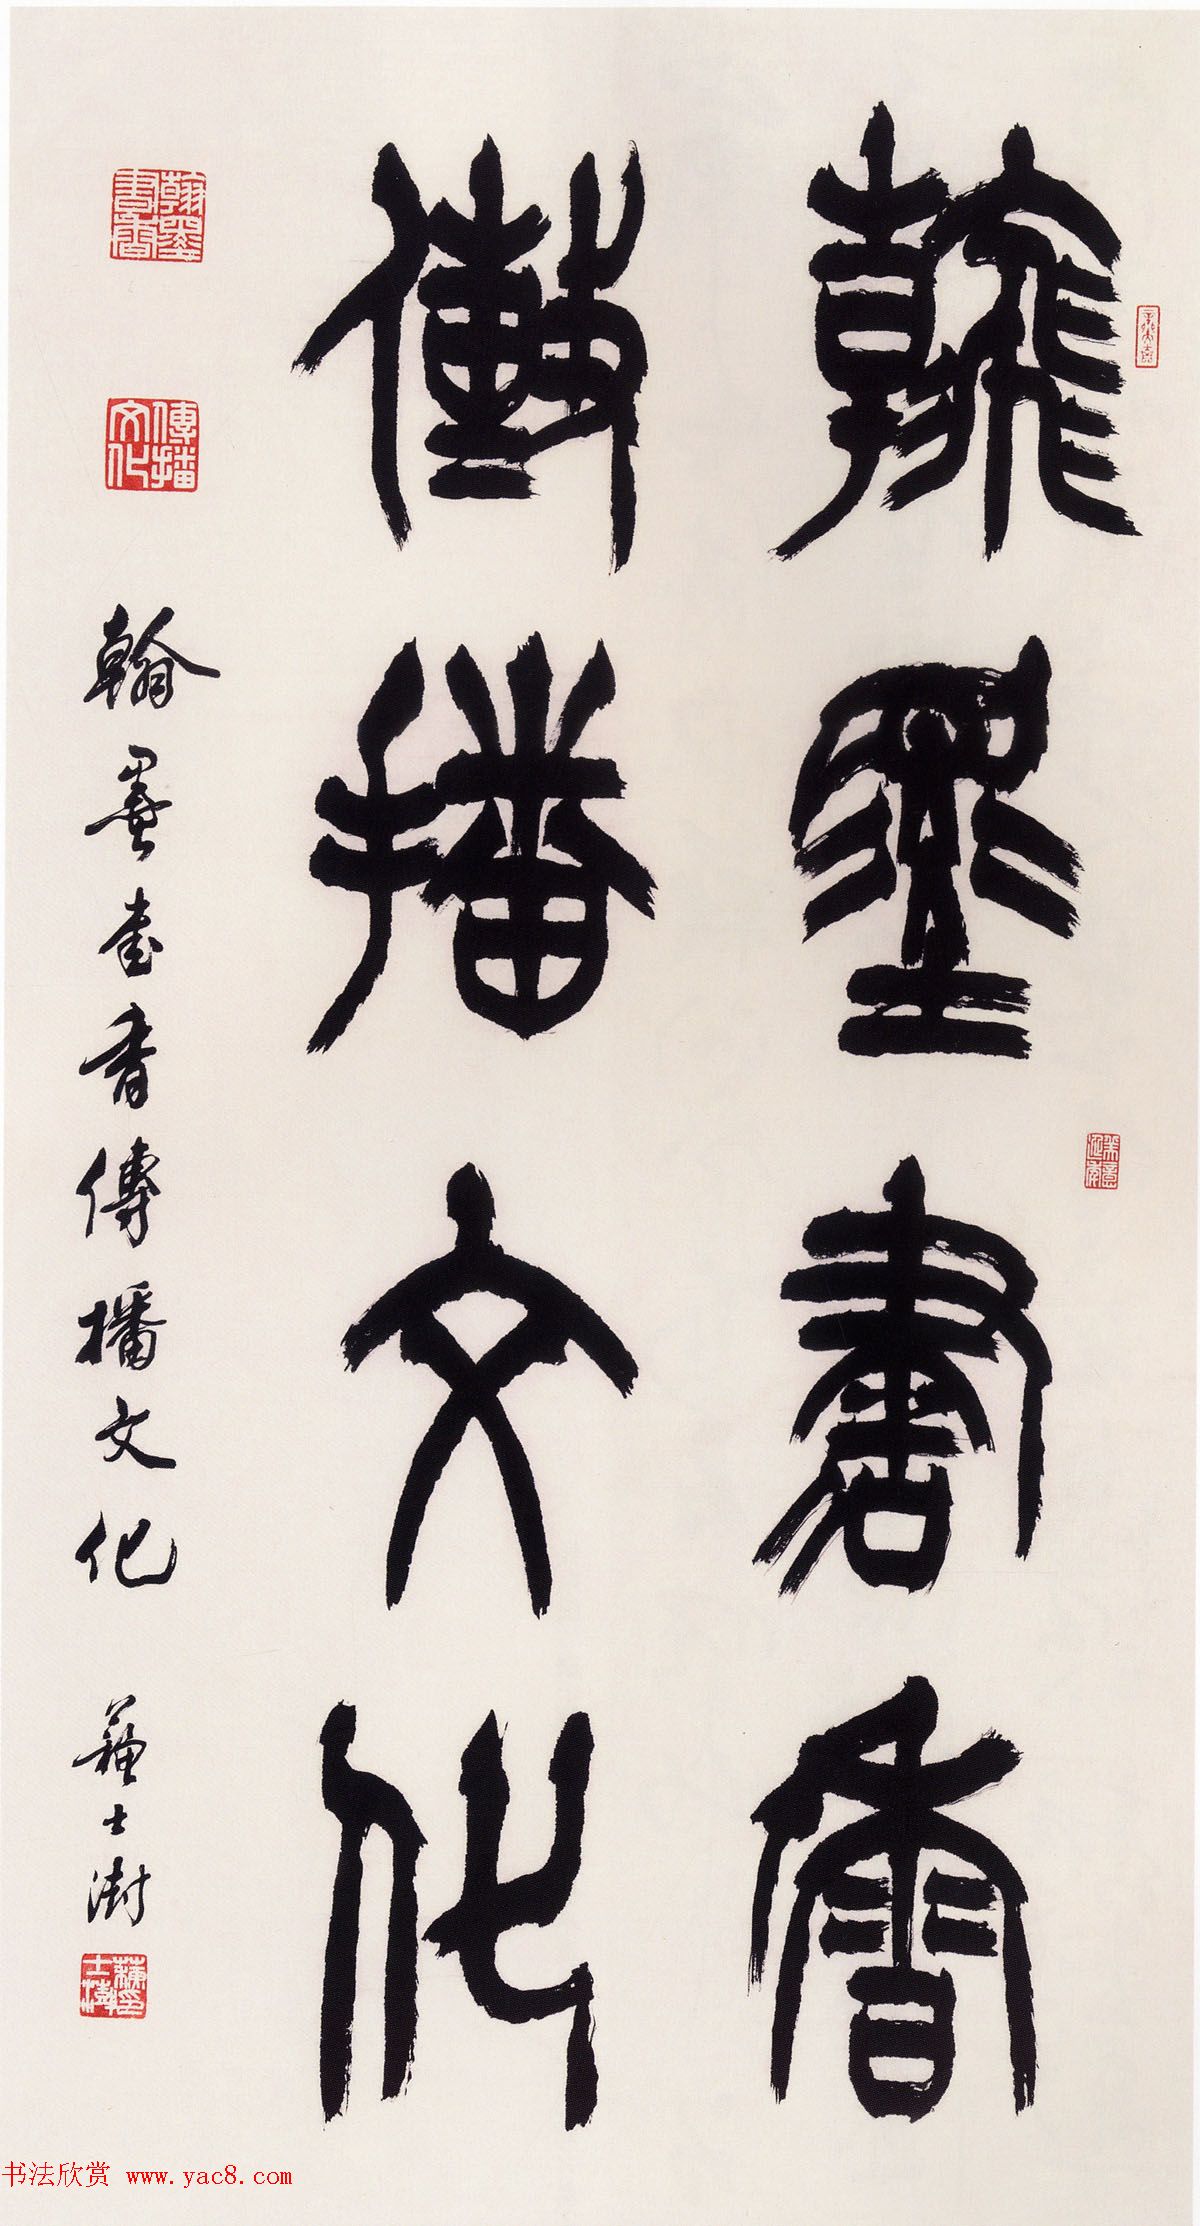 翰墨書香
傳播文化
翰墨書香傳播文化
蘇士澍
翰墨書香
傳播文化
书法欣赏 www.yac8.com